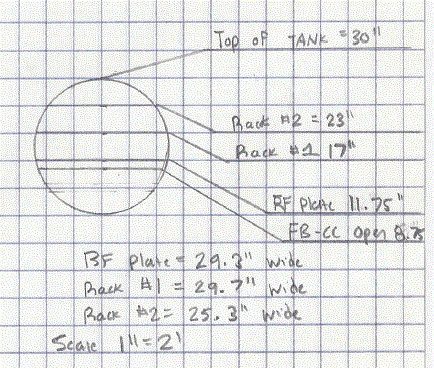 Top of TANK = 30"
Rack #2 = 23"
Rack #1 17"
RF Plate 11.75"
FB-CC open 8.75
BF Plate = 29.3" wide
Rack #1 = 29.7" wide
Rack #2 = 25.3" wide
Scale 1" = 2'